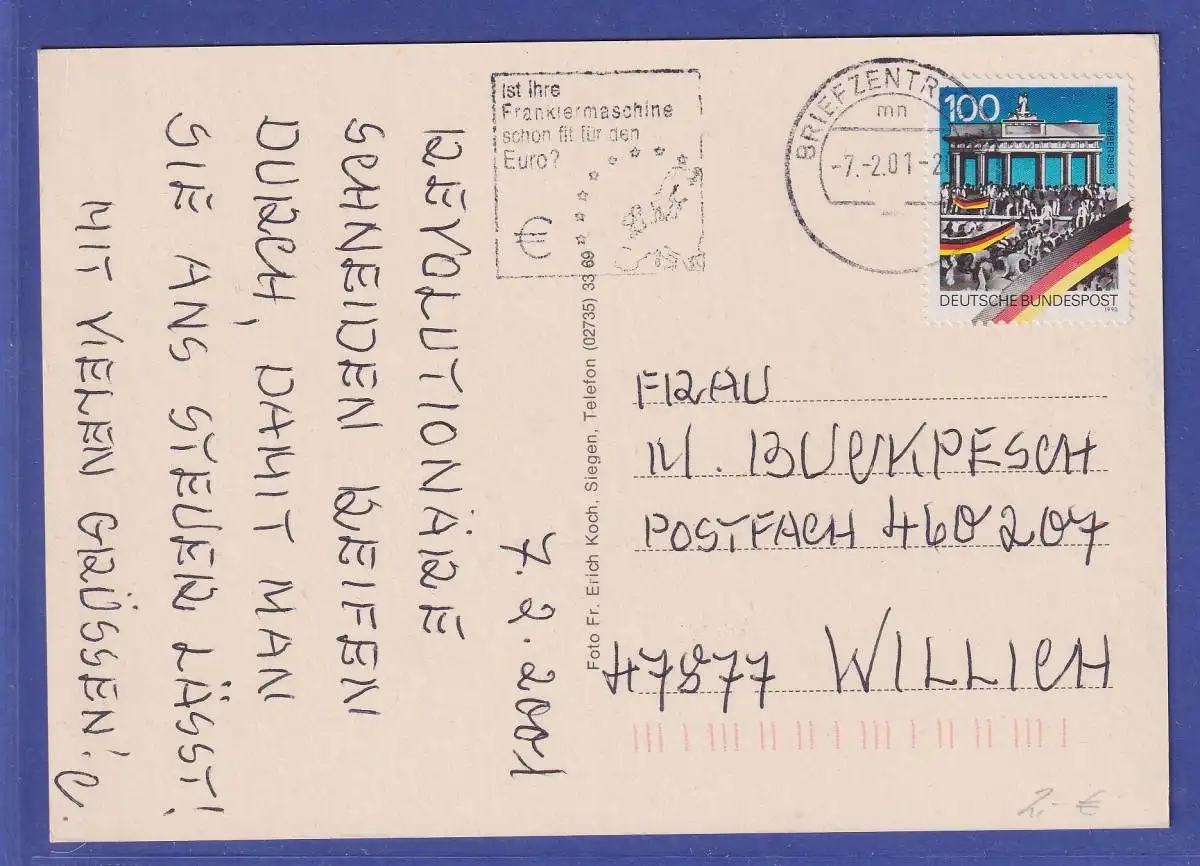 Ist Ihre
Frankiermaschine
schon fit für den
Euro?
BRIEFZENTR
mn
-7.-2.01-2
100
9. NOVEMBER 1989
DEUTSCHE BUNDESPOST
1990
7. 2. 2001
REVOLUTIONÄRE
SCHNEIDEN REIFEN
DURCH, DAMIT MAN
SIE ANS STEUER LÄSST!
MIT VIELEN GRÜSSEN!
Foto Fr. Erich Koch, Siegen, Telefon (02735) 33 69
FRAU
M. BUCKPESCH
POSTFACH 460207
47877 WILLICH
2,- €